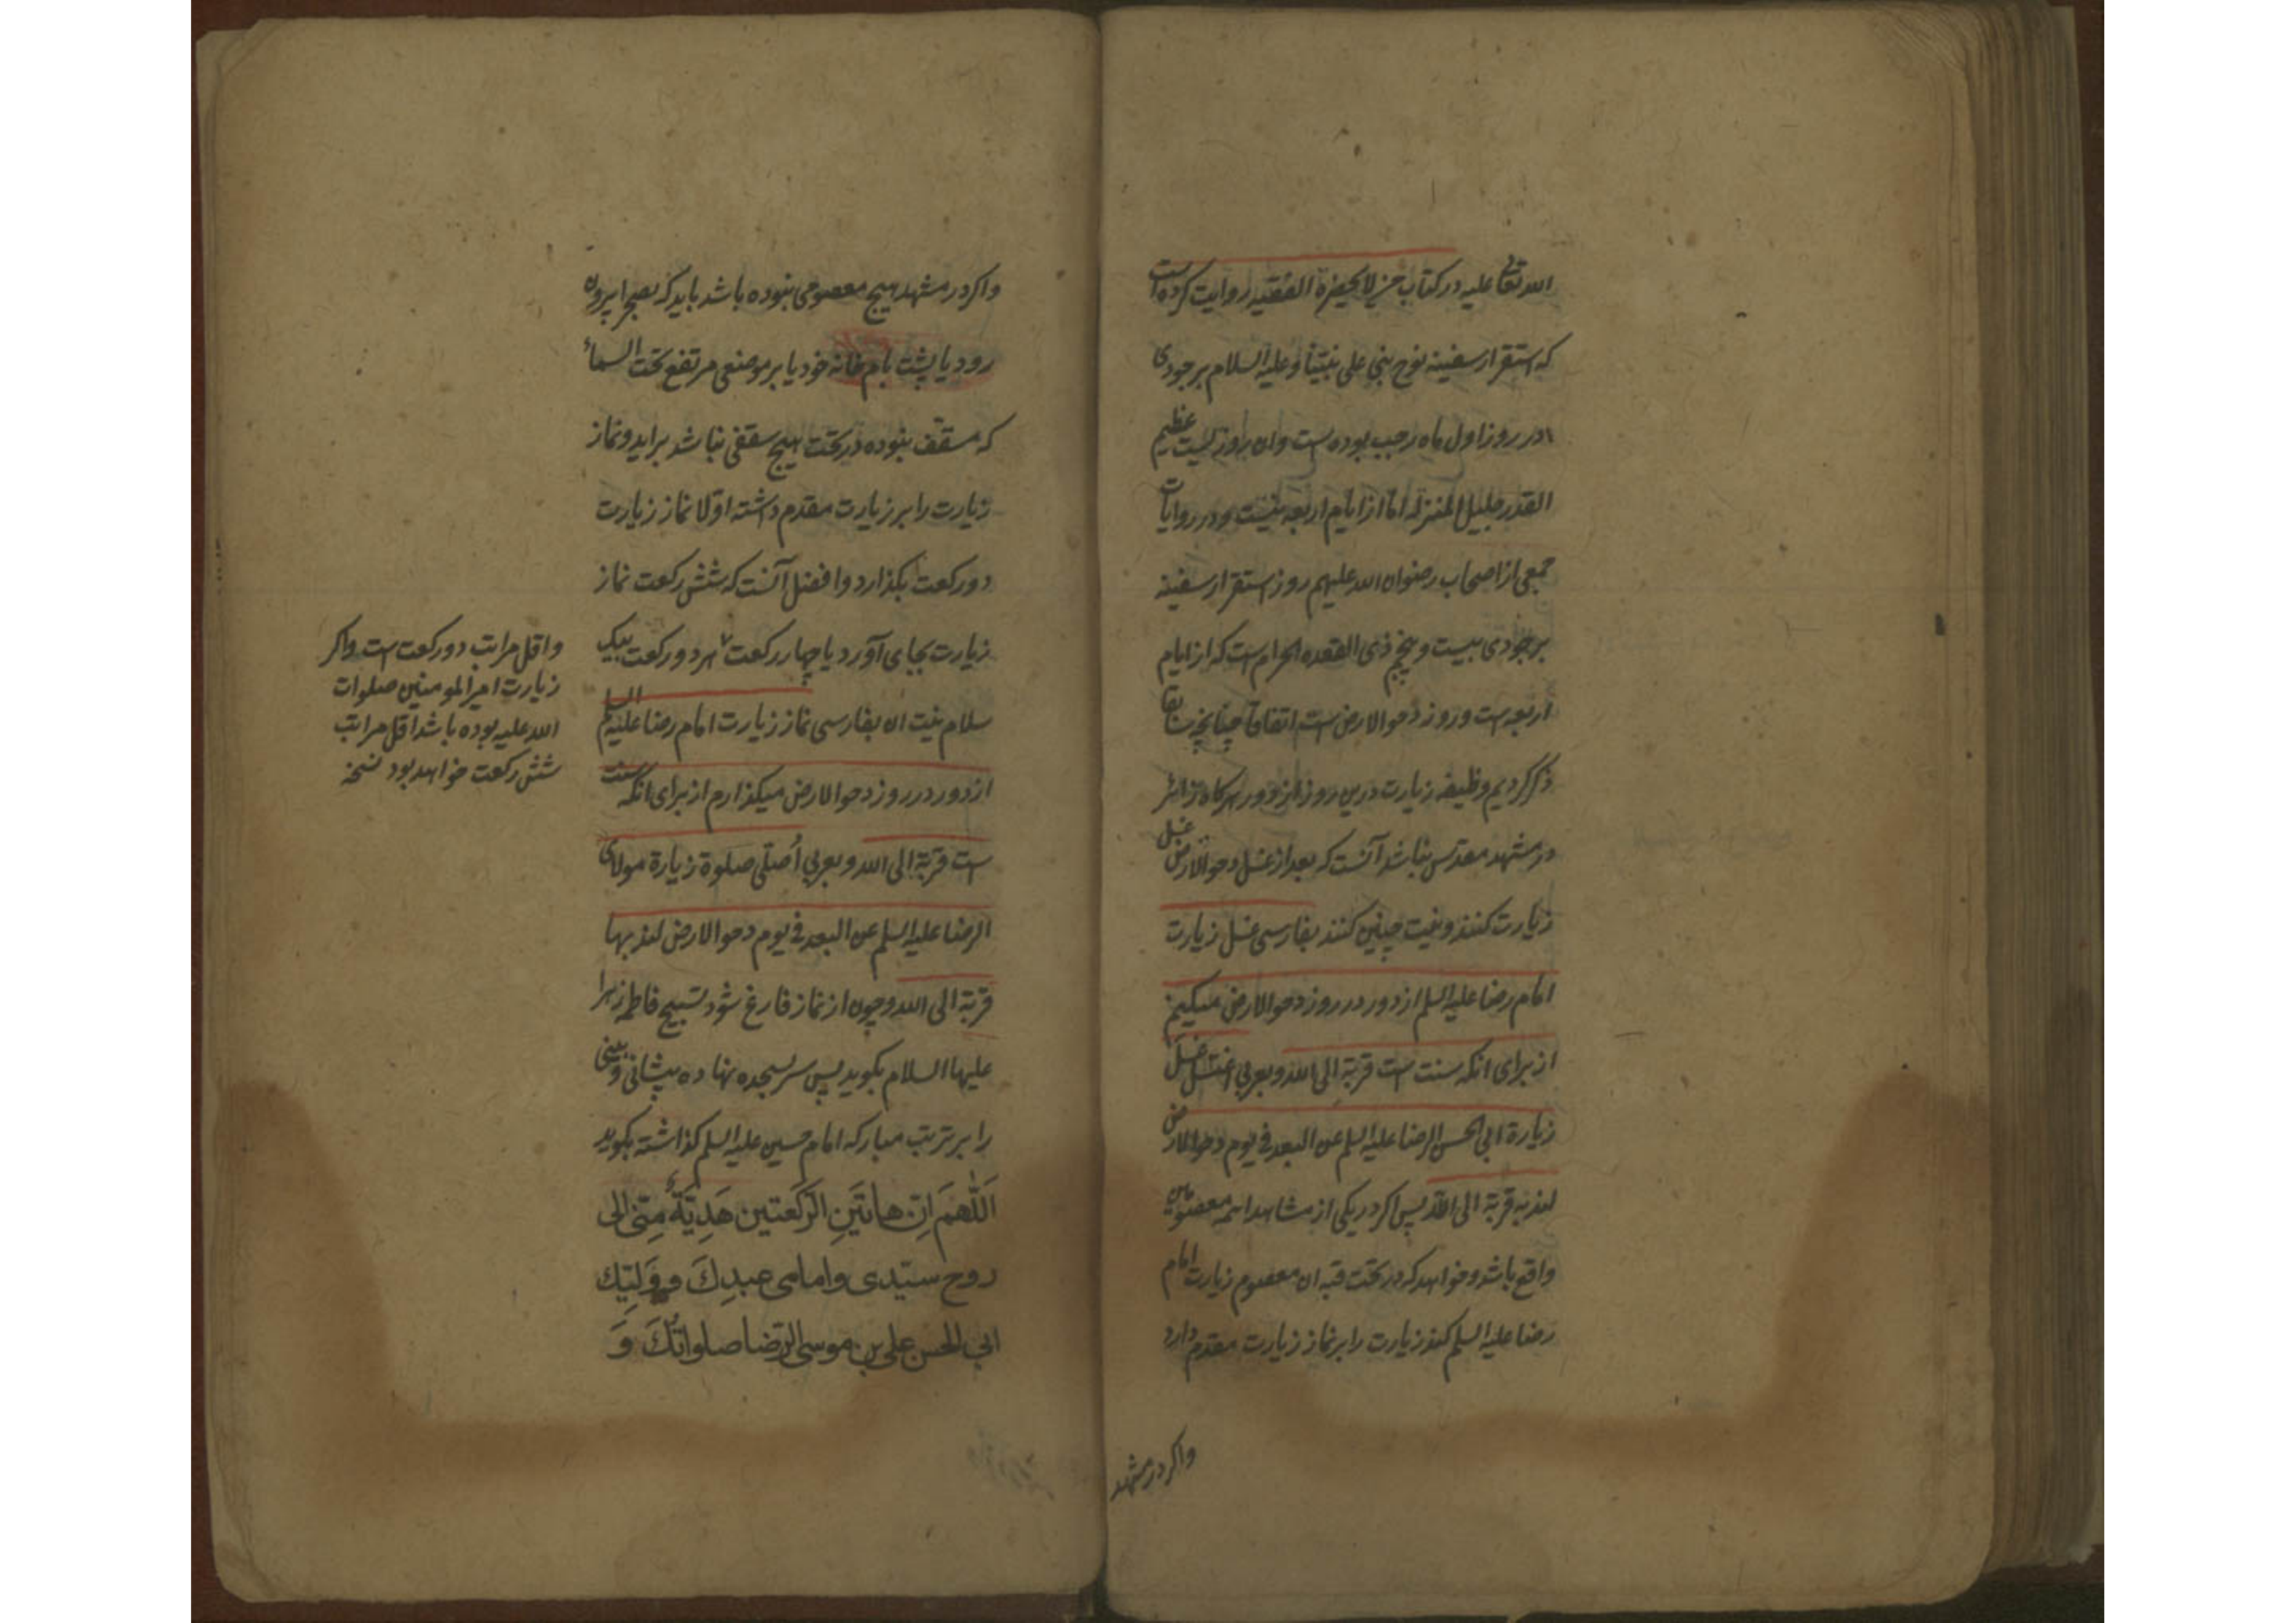 الله تعالی علیه در کتاب من لا یحضره الفقیه روایت کرده است
که استقرار سفینه نوح نبی علی نبینا و علیه السلام بر جودی
در روز اول ماه رجب بوده است و ان روزیست عظیم
القدر جلیل المنزله اما از ایام اربعه نیست و در روایات
جمعی از اصحاب رضوان الله علیهم روز استقرار سفینه
بر جودی بیست و پنجم ذی القعده الحرام است که از ایام
اربعه است و روز دحو الارض است اتفاقا چنانچه سابقا
ذکر کردیم وظیفه زیارت درین روز از دور هر کاه زائر
در مشهد مقدس نباشد آنست که بعد از غسل دحو الارض غسل
زیارت کنند و نیت چنین کنند بفارسی غسل زیارت
امام رضا علیه السلم از دور در روز دحو الارض میکنم
از برای انکه سنت است قربة الی الله و بعربی اغتسل غسل
زیارة ابی الحسن الرضا علیه السلم عن البعد فی یوم دحو الارض
لندبه قربة الی الله پس اکر در یکی از مشاهد ائمه معصومین
واقع باشد و خواهد که در تحت قبه ان معصوم زیارت امام
رضا علیه السلم کند زیارت را بر نماز زیارت مقدم دارد
واکر در مشهد
واکر در مشهد هیچ معصومی نبوده باشد باید که بصحرا بیرون
رود یا پشت بام خانه خود یا بر موضعی مرتفع تحت السماء
که مسقف نبوده در تحت هیچ سقفی نباشد براید و نماز
زیارت را بر زیارت مقدم داشته اولا نماز زیارت
دو رکعت بکذارد و افضل آنست که شش رکعت نماز
زیارت بجای آورد یا چهار رکعت هر دو رکعت بیک
سلام نیت ان بفارسی نماز زیارت امام رضا علیه السلم
از دور در روز دحو الارض میکذارم از برای انکه سنت
است قربة الی الله و بعربی أصلی صلوة زیارة مولای
الرضا علیه السلم عن البعد فی یوم دحو الارض لندبها
قربة الی الله و چون از نماز فارغ شود تسبیح فاطمه زهرا
علیها السلام بکوید پس سر بسجده نهاده پیشانی و بینی
را بر تربت مبارکه امام حسین علیه السلم کذاشته بکوید
اَللّٰهمَ اِنّ هاتَینِ الرّکعَتین هَدِیّةٌ مِنّی الی
روح سیّدی وامامی عبدِكَ وَوَلیّك
ابی الحسن علی بن موسی الرّضا صلواتُكَ وَ
واقل مراتب دو رکعت است واکر
زیارت امیر المومنین صلوات
الله علیه بوده باشد اقل مراتب
شش رکعت خواهد بود نسخه